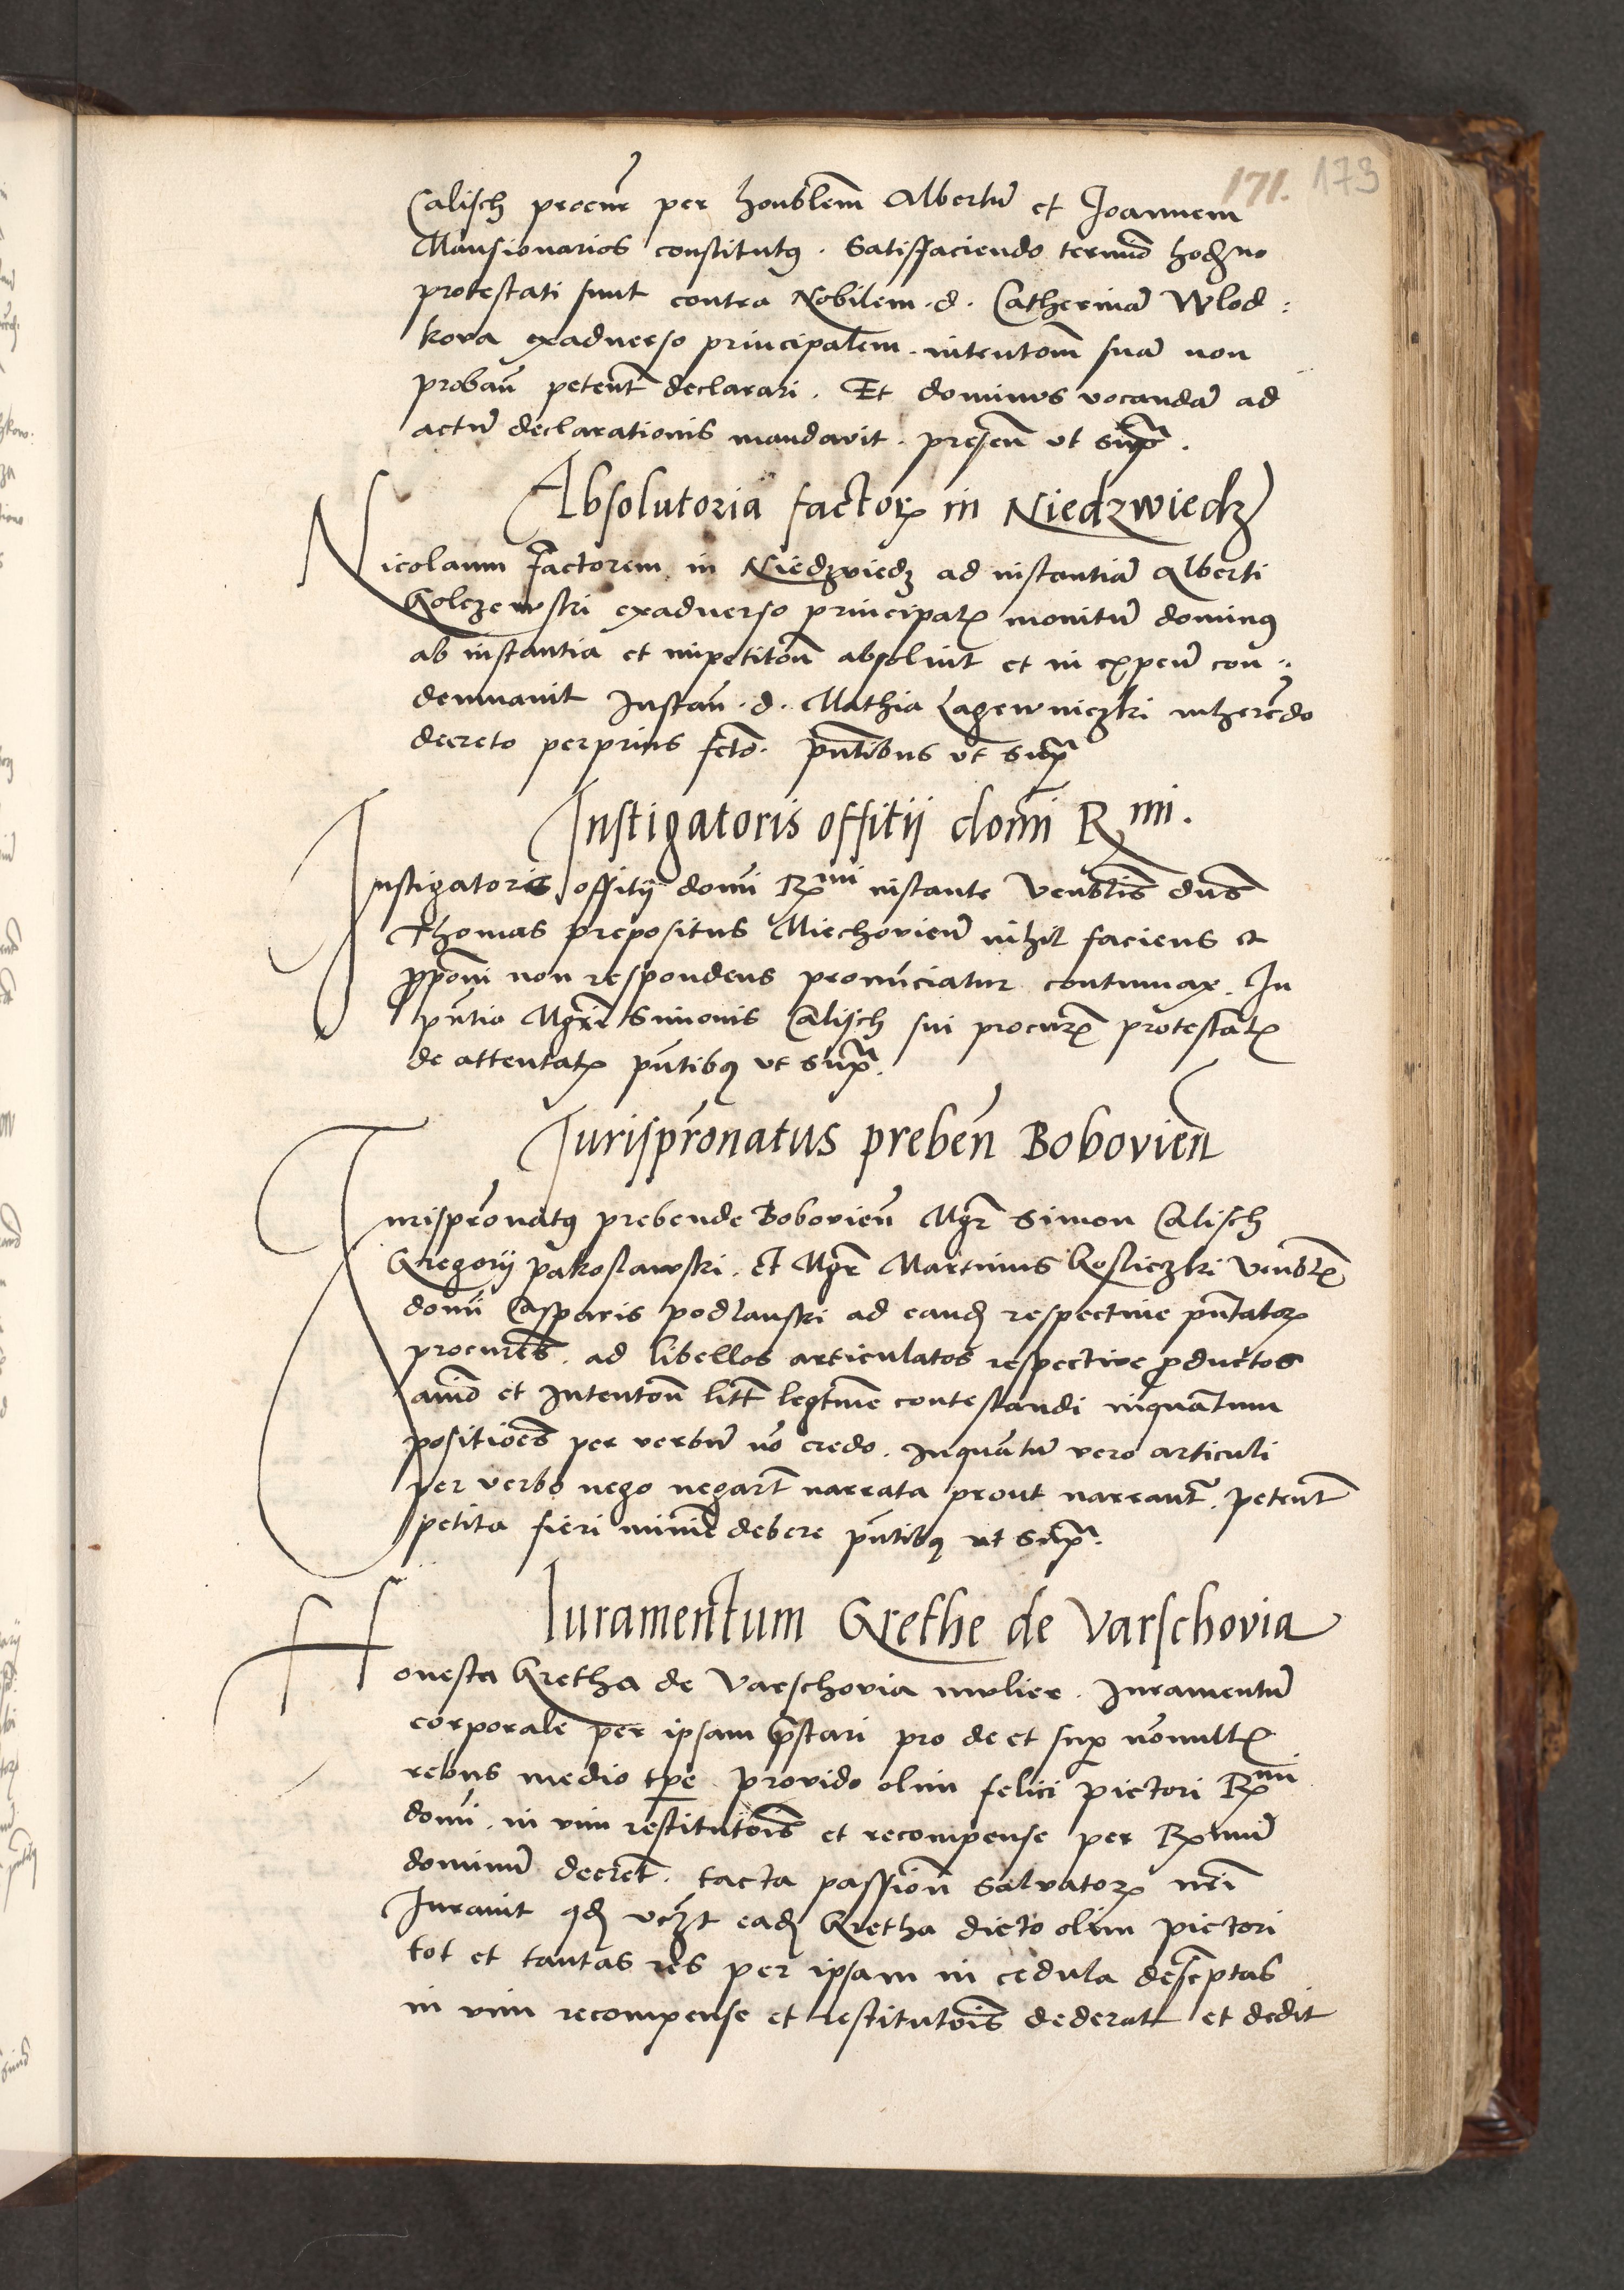 171. 173
Calisch procur per honblem Albertu et Joannem
Mansionarios constitutus. Satisfaciendo termino hodierno
protestati sunt contra Nobilem d. Catherina Wlod:
kova exadverso principalem. intentom sua non
probau petent declarari. Et dominus vocanda ad
actu declarationis mandavit. presen ut supra.
Absolutoria factoris in Niedzwiedz
Nicolaum factorem in Niedzwiedz ad instantia Alberti
Golczewski exadverso principalis monitu dominus
ab instantia et impetitom absolvit et in expen con:
demnavit Instan d. Mathia Lagewniczki inherendo
decreto perprius fcto. pntibus ut supra
Instigatoris offitij domi Rmi.
Instigatoris offitij domi Rmi instante Venblis dns
Thomas prepositus Miechovien nihil faciens et
proponi non respondens pronunciatur contumax. In
pntia Mgri Simonis Calisch sui procuris protestatis
de attentatis pntibus ut supra.
Jurispronatus preben Bobovien
Jurispronatus prebende Bobovien Mgr Simon Calisch
Gregorij Pakoslawski. Et Mgr Martinus Kosliczki Venblis
domi Casparis Podlanski ad eand respective pntator
procures. ad libellos articulatos respective productos
animo et Intentom litt legtime contestandi inquantum
positiones per verbu no credo. Inquantu vero articuli
per verbo nego negart narrata prout narrantr. petent
petita fieri minime debere pntibus ut supra.
Iuramentum Grethe de Varschovia
Honesta Gretha de Varschovia mulier. Iuramentu
corporale per ipsam prestari pro de et super nonnullis
rebus medio tpe provido olim felici pictori Rmi
domi. in vim restitutois et recompense per Rmum
dominu decret. tacta passion Salvatoris nri
Juravit qd eadem Gretha dicto olim pictori
tot et tantas res per ipsam in cedula descptas
in vim recompense et restitutois dederat et dedit